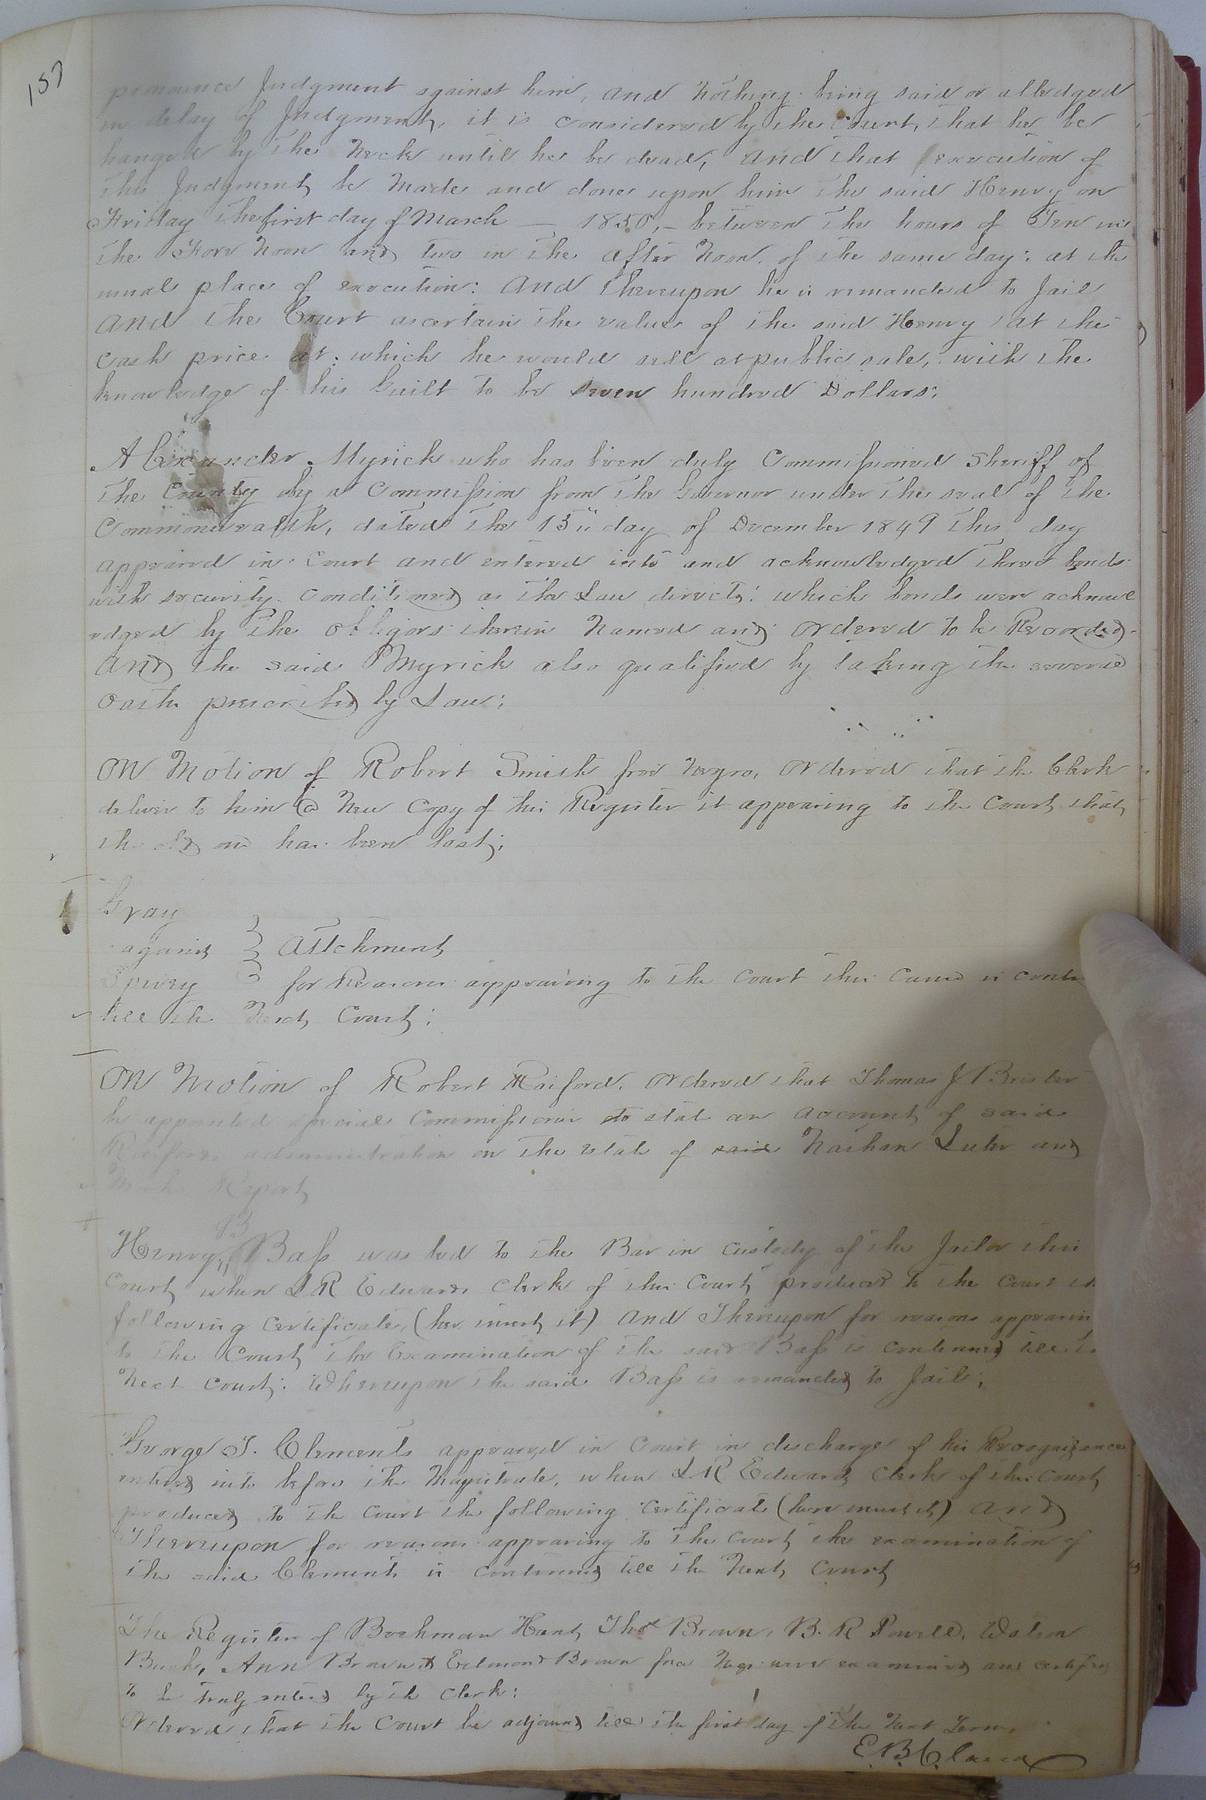 157
pronounce Judgment against him, and Nothing being said or alledged
in delay of Judgment, it is considered by the Court, that he be
hanged by the Neck until he be dead, and that execution of
this Judgment be Made and done upon him the said Henry on
Friday the first day of March — 1850, – between the hours of Ten in
the Fore Noon and two in the after Noon of the same day: at the
usual place of execution: And thereupon he is remanded to Jail
And the Court ascertain the value of the said Henry at the
Cash price at which he would sell at public sale, with the
knowledge of his Guilt to be Seven hundred Dollars;
Alexander Myrick who has been duly Commissioned Sheriff of
the County by a Commission from the Governor under the seal of the
Commonwealth, dated the 15" day of December 1849 this day
appeared in Court and entered into and acknowledged three bonds
with security Conditioned as the Law directs: which bonds were acknowl
edged by the obligors therein Named and ordered to be Recorded
And the said Myrick also qualified by taking the several
oaths prescribed by Law;
On Motion of Robert Smith free Negro, ordered that the Clerk
deliver to him a New Copy of his Register it appearing to the Court that
the old one has been lost;
Gray
against } Attchment
Spivey for Reasons appearing to the Court this Cause is contd
till the Next Court;
On Motion of Robert Raiford, ordered that Thomas J Brister
be appointed special Commissioner to stat an account of said
Raifords administration on the estate of said Nathan Luter and
Make Report
Henry B Bass was led to the Bar in custody of the Jailor this
Court when L R Edwards Clerk of this Court produced to the Court the
following Certificate (her insert it) And Thereupon for reasons appearin
to the Court the Examination of the said Bass is continued till the
Next Court: Whereupon the said Bass is remanded to Jail;
George T. Clements appeared in Court in discharge of his Recognizance
entered into before the Magistrate, when L R Edwards Clerk of this Court
produced to the Court the following Certificate (here insert it) And
Thereupon for reasons appearing to the Court the examination of
the said Clements is continued till the Next Court
The Register of Hant, Thos Brown, B. R Powell, Watson
Ann Brown & Edmond Brown free Negs were examined and certified
to be truly entered by the Clerk;
Ordered that the Court be adjournd till the first day of the Next Term.
E. B. Claud